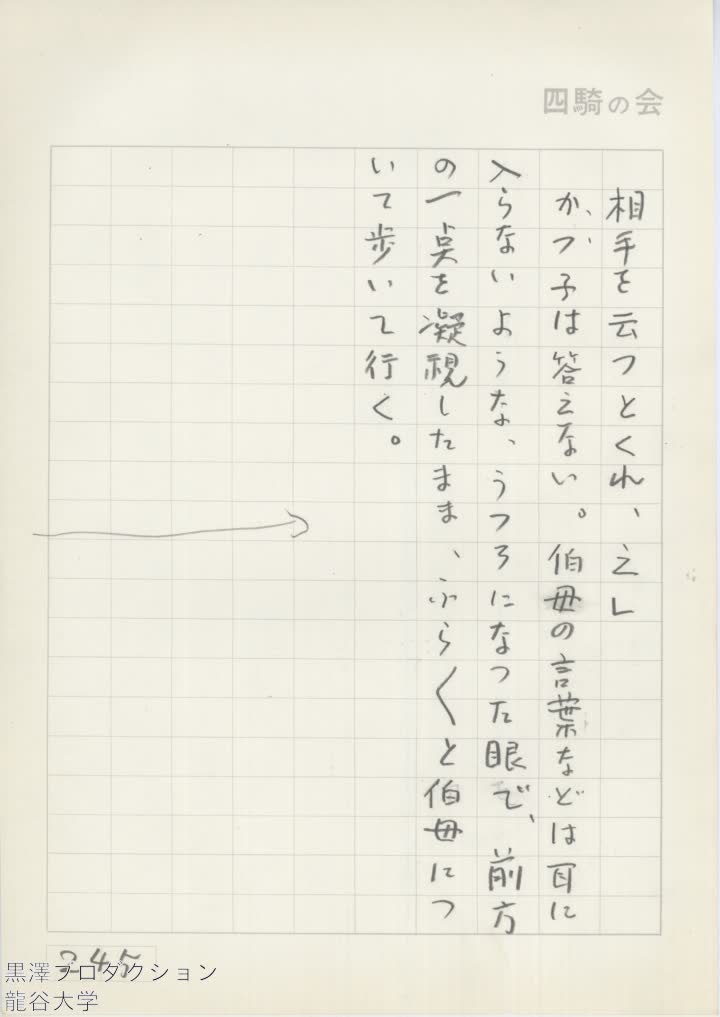 四騎の会
相手を云つとくれ、え」
かつ子は答えない。伯母の言葉などは耳に
入らないような、うつろになつた眼で、前方
の一点を凝視したまま、ふら〱と伯母につ
いて歩いて行く。
245
黒澤プロダクション
龍谷大学